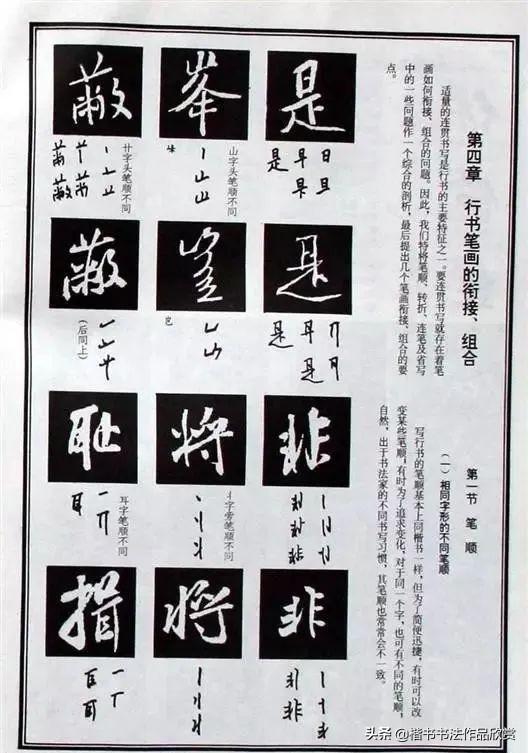 第四章　行书笔画的衔接、组合
适量的连贯书写是行书的主要特征之一。要连贯书写就存在着笔
画如何衔接、组合的问题。因此，我们特将笔顺、转折、连笔及省写
中的一些问题作一个综合的剖析，最后提出几个笔画衔接、组合的要
点。
第一节　笔　顺
（一）相同字形的不同笔顺
写行书的笔顺基本上同楷书一样，但为了简便迅捷，有时可以改
变某些笔顺，有时为了追求变化，对于同一个字，也可有不同的笔顺，
自然，出于书法家的不同书写习惯，其笔顺也常常会不一致。
是
日旦
早
是
是
早
是
是
非
非
山字头笔顺不同
丨
山
丬字旁笔顺不同
将
将
艹字头笔顺不同
蔽
蔽
（后同上）
耳字笔顺不同
耻
揖
头条@楷书书法作品欣赏